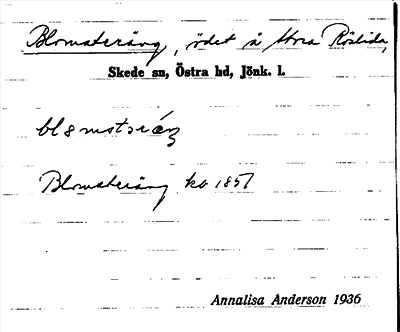 Blomsteräng, ödet å Stora Röslida,
Skede sn, Östra hd, Jönk. l.
Blomsteräng kb 1857
Annalisa Anderson 1936